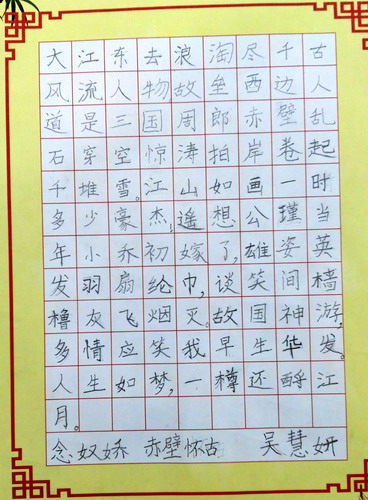 大江东去浪淘尽千古
风流人物故垒西边人
道是三国周郎赤壁乱
石穿空惊涛拍岸卷起
千堆雪。江山如画一时
多少豪杰,遥想公瑾当
年小乔初嫁了,雄姿英
发羽扇纶巾,谈笑间樯
橹灰飞烟灭。故国神游,
多情应笑我早生华发。
人生如梦,一樽还酹江
月。
念奴娇 赤壁怀古 吴慧妍